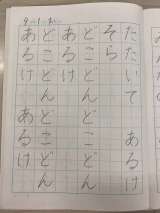 たたいて　あるけ
そら
どこどん　どこどん
あるけ
どこどん　どこどん
あるけ　あるけ